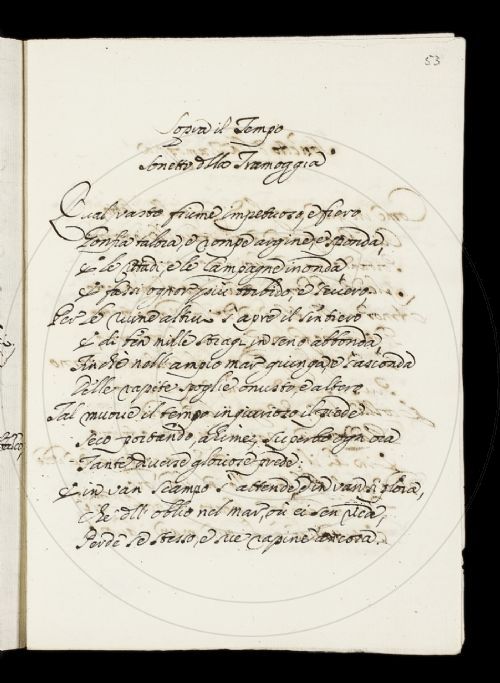 53
Sopra il Tempo
Sonetto della Tramoggia
Qual vasto fiume impetuoso, e fiero
Gonfia talora, e rompe argine, e sponda,
E le Cittadi, e le Campagne inonda
E fassi ognor più torbido, e severo
Per le ruine altrui s'apre il sentiero
E di ben mille stragi in seno abbonda
Finche nell'ampio mar giunga, e s'asconda
Delle rapite spoglie onusto, e altero
Tal muove il tempo ingiurioso il piede
Seco portando, ahimè, superbo ogn'ora
Tante diverse gloriose prede:
E in van scampo s'attende, e in van si plora,
Che dell'oblio nel mar, ov'ei sen riede,
Perde se stesso, e sue rapine ancora.